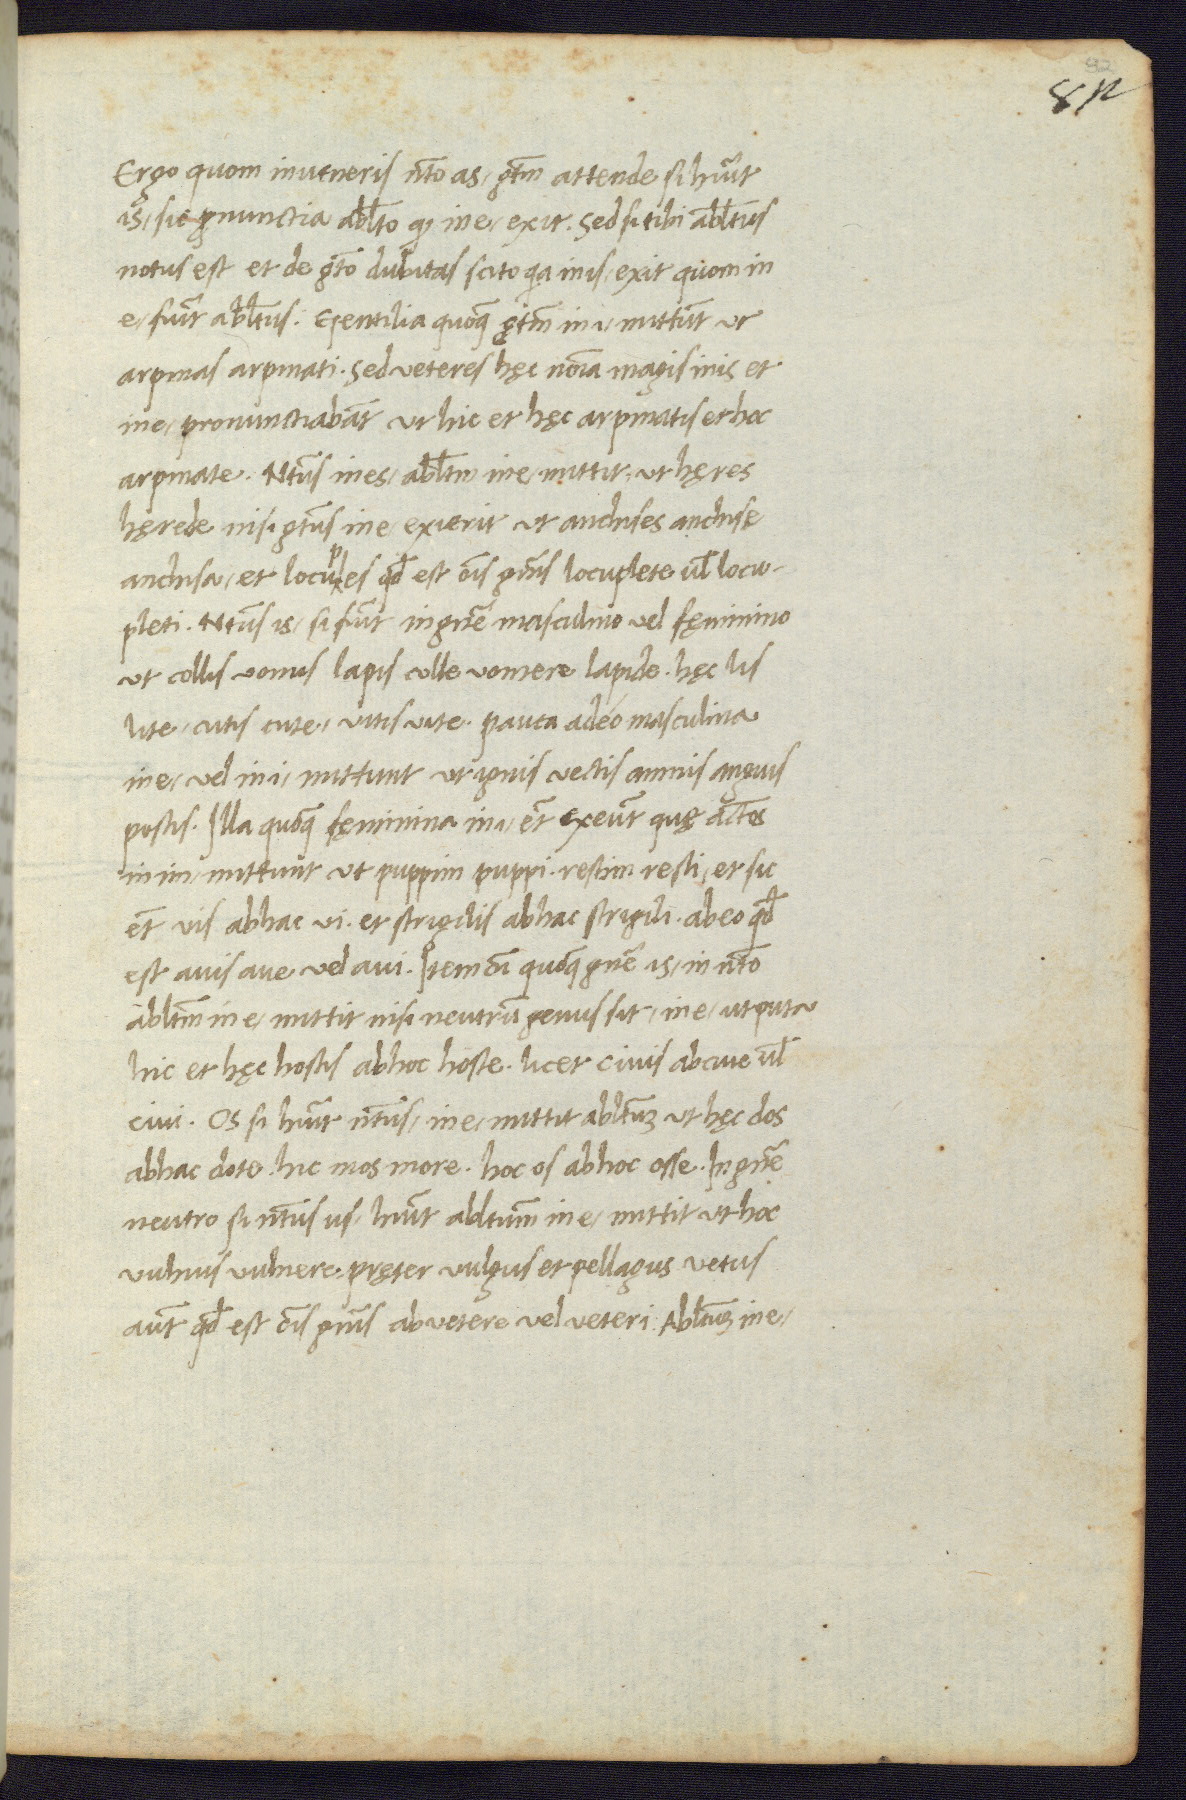 92
82
Ergo quom inueneris nt̄o as, gt̄m attende si hūit
is, sic pnunctia abl̄to qȝ in e, exit. Sed si tibi abl̄tus
notus est et de gt̄o dubitas scito qa in is, exit quom in
e, fūit abl̄tus. Gentilia quoqȝ gt̄m in i, mittūt ut
arpinas arpinati. Sed ueteres hęc noīa magis in is et
in e, pronunctiabāt ut hic et hęc arpinatis et hoc
arpinate. Nt̄us in es, abl̄tm in e, mittit, ut hęres
hęrede nisi gt̄us in e, exierit ut anchises anchisę
anchisa, et locuples qd̄ est ōis gn̄is locuplete ul̄ locu-
pleti. Nt̄us is, si fūit in gn̄e masculino uel fęminino
ut collis uomis lapis colle uomere lapide. hęc lis
lite, cutis cute, uitis uite. pauca adeo masculina
in e, uel in i, mittunt ut ignis uectis amnis anguis
postis. Illa quoqȝ fęminina in i, ēt exeūt quę actōs
in im, mittunt ut puppim puppi. restim resti, et sic
ēt uis ab hac ui. et strigilis ab hac strigili. ab eo qd̄
est auis aue uel aui. Item ōi quoqȝ gn̄e is, in nt̄o
abltm̄ in e, mittit nisi neutrū genus sit, in e, utputa
hic et hęc hostis ab hoc hoste. licet ciuis ab ciue ul̄
ciui. Os si hūit nt̄us, in e, mittit abltūȝ ut hęc dos
ab hac dote. hic mos more. hoc os ab hoc osse. In gn̄e
neutro si nt̄us us, hūit abltum̄ in e, mittit ut hoc
uulnus uulnere. pręter uulgus et pellagus uetus
aūt qd̄ est ōis gn̄is ab uetere uel ueteri. Abltūȝ in e,